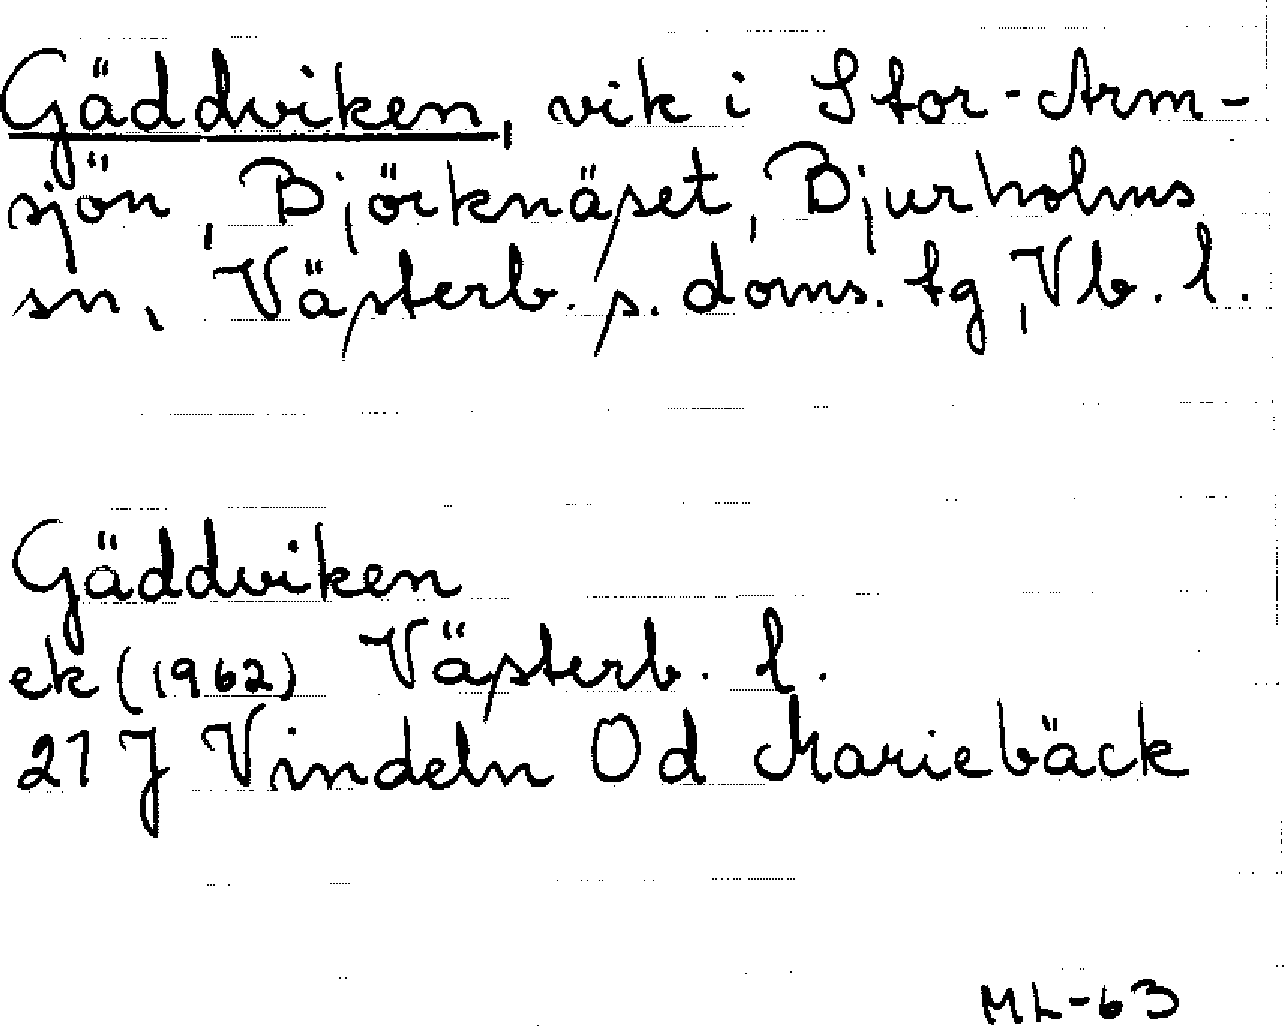 Gäddviken, vik i Stor-Arm-
sjön, Björknäset, Bjurholms
sn, Västerb. s. doms. tg, Vb. l.
Gäddviken
ek (1962) Västerb. l.
21 J Vindeln 0d Mariebäck
ML-63